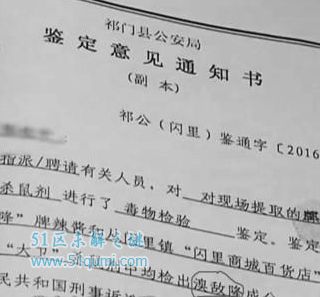 祁门县公安局
鉴定意见通知书
(副本)
祁公（闪里）鉴通字〔2016
指派/聘请有关人员，对 对现场提取的
杀鼠剂 进行了 毒物检验 鉴定。鉴定
隆”牌辣酱和从 里镇“闪里商城百货店”
“大 中均检出溴敌隆成
民共和国刑事诉
51区未解之谜
www.51qumi.com